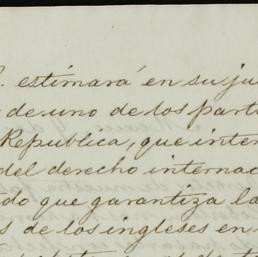 estimará en su ju
de uno de los part
Republica, que inter
del derecho internac
do que garantiza la
s de los ingleses en